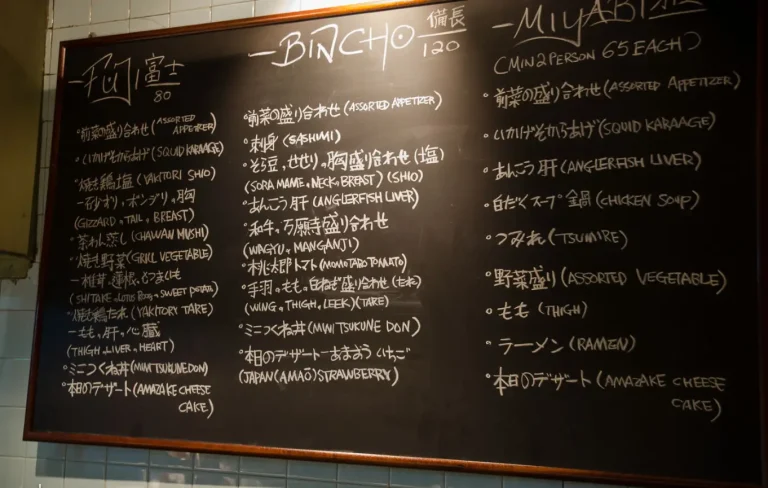 富士
80
°前菜の盛り合わせ (ASSORTED APPETIZER)
°いかげそからあげ (SQUID KARAAGE)
°焼き鶏塩 (YAKITORI SHIO)
ー砂ずり。ボンデリ。胸
(GIZZARD, TAIL, BREAST)
°茶わん蒸し (CHAWAN MUSHI)
°焼き野菜 (GRILL VEGETABLE)
ー椎茸。蓮根。さつまいも
(SHITAKE, LOTUS ROOT, SWEET POTATO)
°焼き鶏たれ (YAKITORY TARE)
ーもも。肝。心臓
(THIGH, LIVER, HEART)
°ミニつくね丼 (MINI TSUKUNE DON)
°本日のデザート (AMAZAKE CHEESE
CAKE)
ーBINCHO 備長
120
°前菜の盛り合わせ (ASSORTED APPETIZER)
°刺身 (SASHIMI)
°そら豆。せせり。胸盛り合わせ (塩)
(SORA MAME, NECK, BREAST) (SHIO)
°あんこう肝 (ANGLERFISH LIVER)
°和牛。万願寺盛り合わせ
(WAGYU, MANGANJI)
°桃太郎トマト (MOMOTARO TOMATO)
°手羽。もも。白ねぎ盛り合わせ (たれ)
(WING, THIGH, LEEK) (TARE)
°ミニつくね丼 (MINI TSUKUNE DON)
°本日のデザートーあまおう いちご
(JAPAN (AMAŌ) STRAWBERRY)
ーMIYABI
(MIN 2 PERSON 65 EACH)
°前菜の盛り合わせ (ASSORTED APPETIZER)
°いかげそからあげ (SQUID KARAAGE)
°あんこう肝 (ANGLERFISH LIVER)
°白だく スープ 鍋 (CHICKEN SOUP)
°つみれ (TSUMIRE)
°野菜盛り (ASSORTED VEGETABLE)
°もも (THIGH)
°ラーメン (RAMEN)
°本日のデザート (AMAZAKE CHEESE
CAKE)